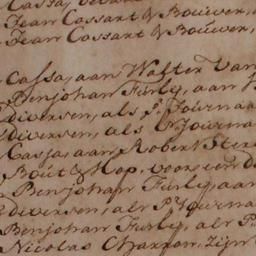 Cassa,
Jean Cossart & Bouwer,
Jean Cossart & Bouwer,
Cassa, aan Walter van
Benjohan Furly, aan
diversen, als p.r Journaal
diversen, als p.r Journa
Cassa, aan Robert
Bout & Hop, voor een
Benjohan Furly, aan
diversen, als p.r Journa
Benjohan Furly, als P
Nicolas Charron, zijn